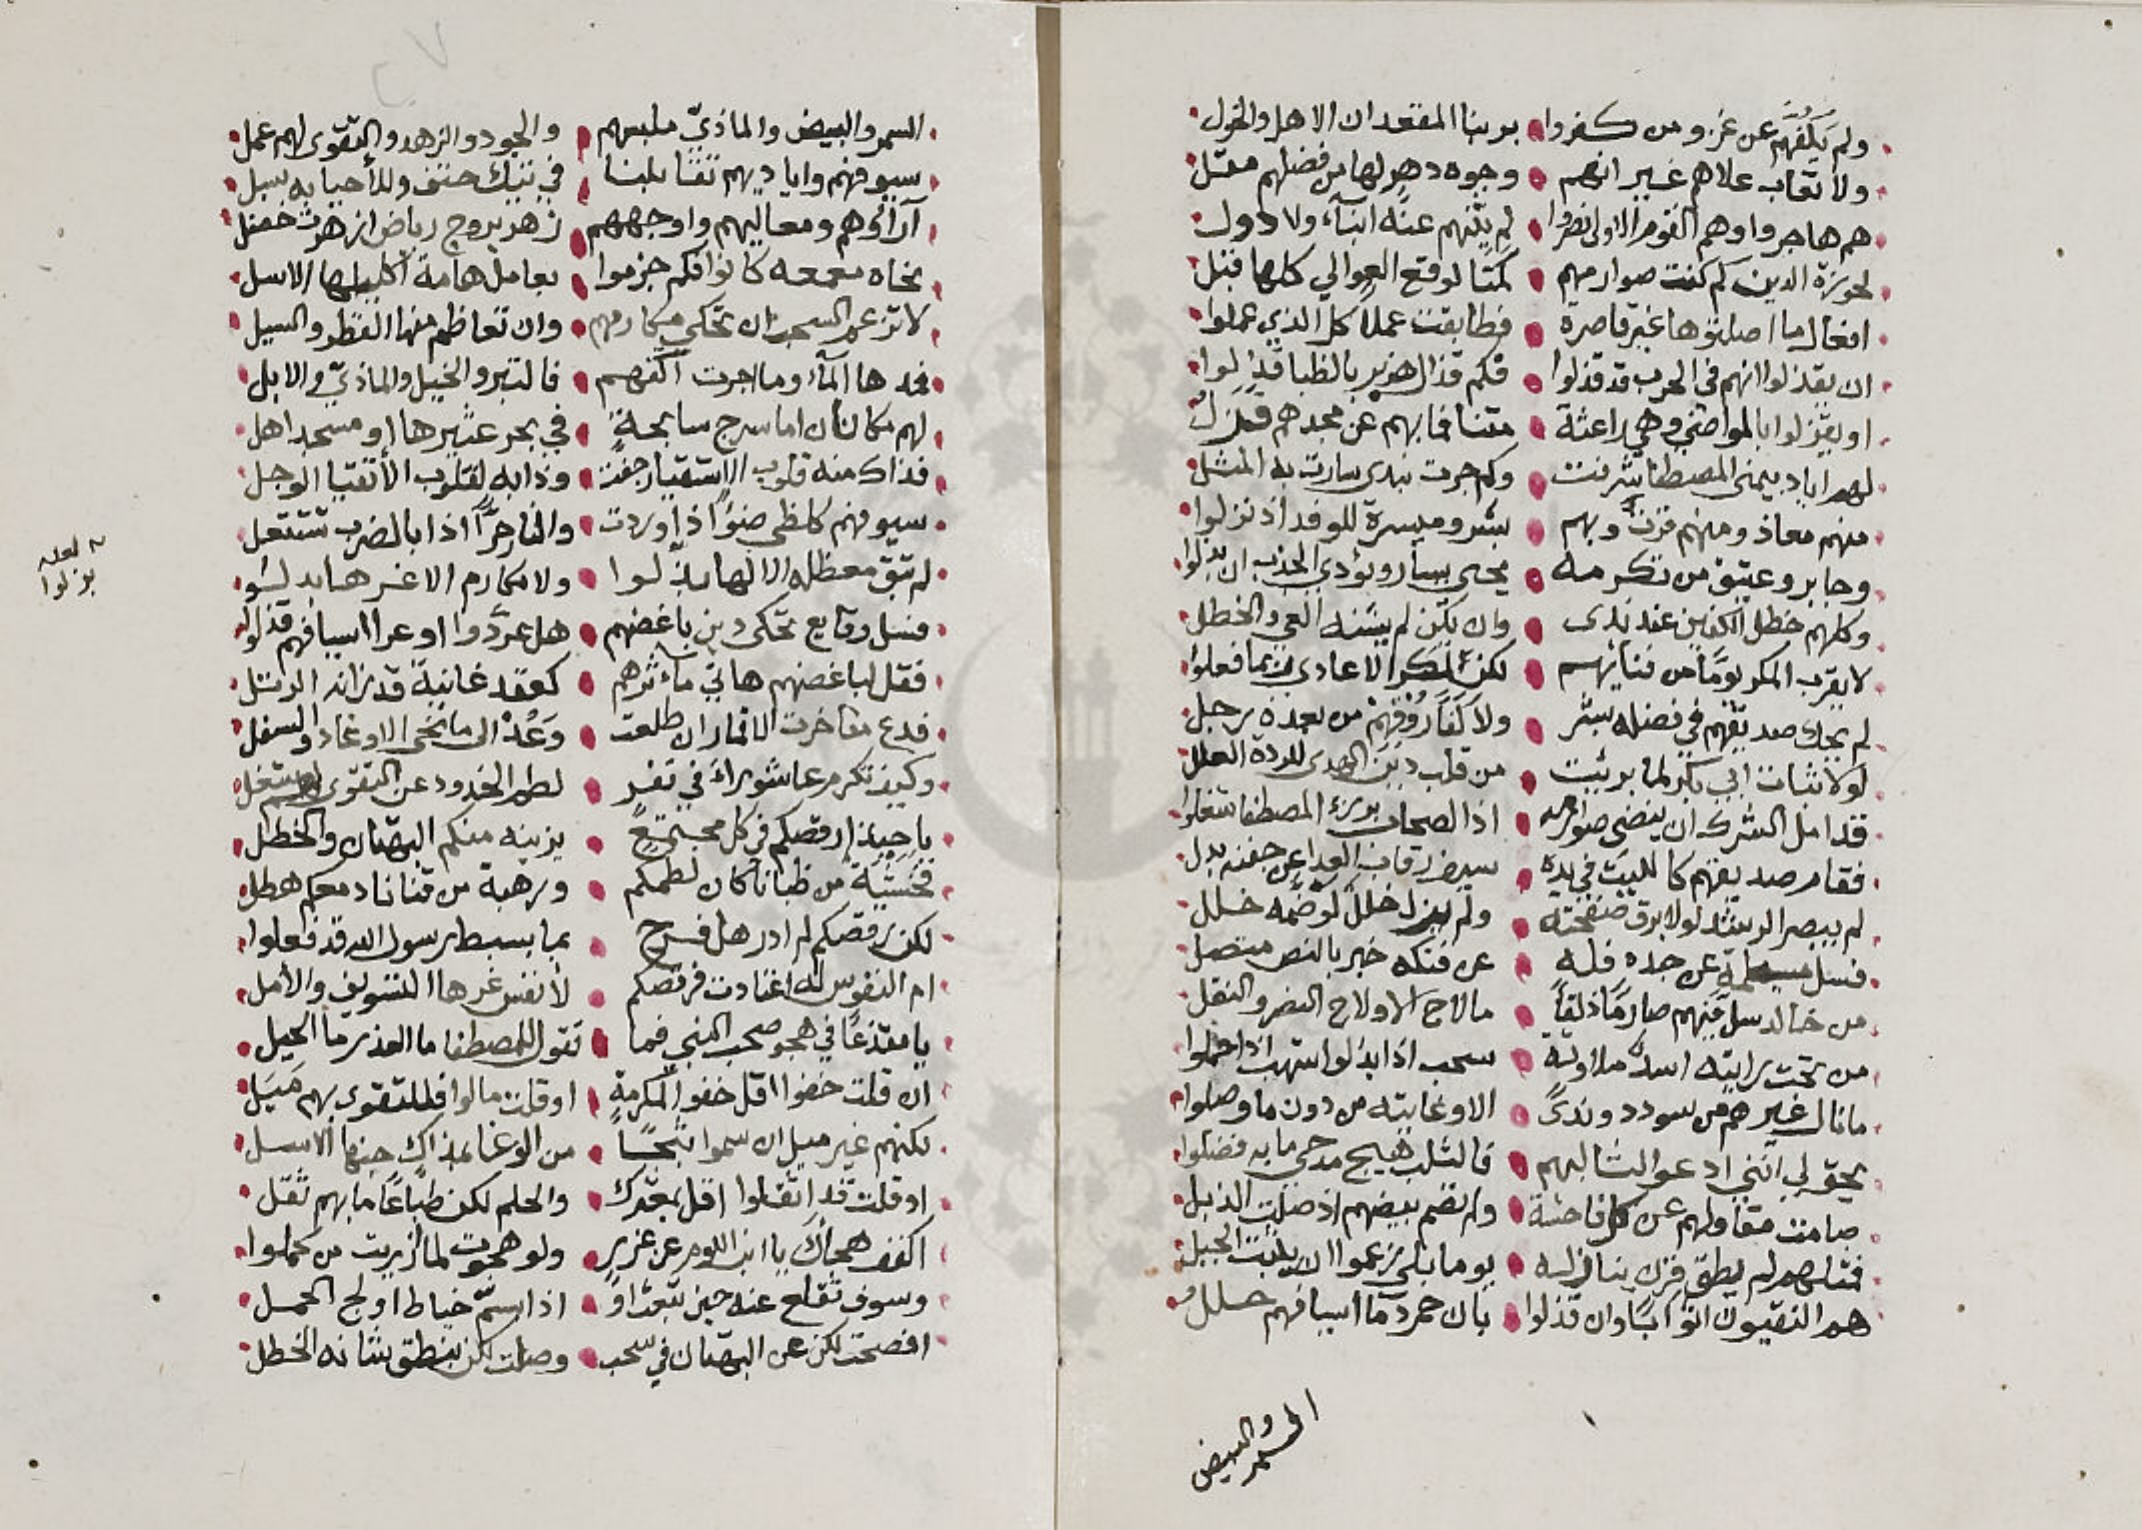 ولم يكفهم عن غزو من كفروا بوبنا المقعدان الاهل والخول
ولا تعاب علاهم غير انهم وجوه دهر لها من فضلهم مقل
هم هاجروا وهم القوم الاولى نصروا لم يثنهم عنه ابناء ولا دول
لحوزة الدين كم كفت صوارمهم كمتا لوقع العوالي كلها قبل
افعال ما اصلتوها غير قاصرة فطابقت عملا كل الذي عملوا
ان يقذلوا انهم في الحرب قد قذلوا فكم قذال هزبر بالظبا قذلوا
او يقزلوا بالمواضي وهي راعثة متنا فما بهم عن مجدهم قزل
لهم اياد بيمنى المصطفا شرفت وكم جرت بندى سارت به المثل
منهم معاذ ومنهم فزت وبهم بشر وميسرة للوفد اذ نزلوا
وجابر وعتيق من تكرمه يحيى يسار ويؤدي الجدب ان بذلوا
وكلهم خطل الكفين عند ندى وان يكن لم يشنه العي والخطل
لا يقرب المكر يوما من فنائهم لكن لمكر الاعادي ربما فعلوا
لم يحك صديقهم في فضله بشر ولا كفاروقهم من بعده رجل
لولا ثبات ابي بكر لما برئت من قلب دين الهدى للردة العلل
قد امل الشرك ان ينضى صوارمه اذا الصحاب برزء المصطفا شغلوا
فقام صديقهم كالليث في يده سيف رقاب العدا عن جفنه بدل
لم يبصر الرشد لولا برق صفحته ولم يزل خلل لو ضمه خلل
فسل مسيلمة عن جده فله عن فتكه خبر بالنص متصل
من خالد سل منهم صارما ذلقا ما لاح الا ولاح النصر والنفل
من تحت رايته اسد ملاوثة سحب اذا بذلوا شهب اذا حملوا
ما نال غيرهم من سودد وندى الا وغايته من دون ما وصلوا
يحق لي انني ادعو الثنا لهم فالثلب هيج مدحي ما به فضلوا
صامت مقاولهم عن كل فاحشة ولم تصم بيضهم اذ صلت الذبل
فمثلهم لم يطق قزن ينازله يوما بلى زعموا ان يثبت الجبل
هم النقيون اثوابا وان قذلوا بان حمر دما اسيافهم حلل
السمر والبيض
السمر والبيض والماذي ملبسهم والجود والزهد والتقوى لهم عمل
سيوفهم واياديهم تقابلنا في تيك حتف وللأحيا به سبل
آراؤهم ومعاليهم واوجههم زهر بروج رياض ازهرت خضل
نحاه معمعه كانوا فكم جزموا بعامل هامة اكليلها الاسل
لا تزعم السحب ان تحكي مكارمهم وان تعاظم منها القطر والسيل
فمدها الماء وما اجرت اكفهم فالتبر والخيل والماذي والابل
لهم مكانان اما سرج سابحة في بحر عثيرها او مسجد اهل
فذاك منه قلوب الاشقيا رجفت وذا به لقلوب الأتقيا الوجل
سيوفهم كلظى ضوءا اذا وردت والنار حرا اذا بالضرب تشتعل
لم تبق معظلة الا لها بذلوا ولا مكارم الا غرها بدلوا
لعله بزلوا
فسل وقايع تحكي دين باغضهم هل عردوا او عرا اسيافهم قذل
فقل لباغضهم هاتي مآثرهم كعقد غانية قد زانه الرتل
فدع مفاخرت الاقمار ان طلعت وعد الى ما نحى الاوغاد والسفل
وكيف تكرم عاشوراء في نفر لطم الخدود عن التقوى لهم شغل
يا حبذا رقصكم في كل مجتمع يزينه منكم البهتان والخطل
فخشية من ظبانا كان لطمكم ورهبة من قنانا دمعكم هطل
لكن رقصكم لم ادر هل فرح بما بسبط رسول الله قد فعلوا
ام النفوس له اعتادت فرقصكم لأنفس غرها التسويف والأمل
يا مقذعا في هجو صحب النبي فما تقول للمصطفا ما العذر ما الحيل
ان قلت خفوا اقل خفوا لمكرمة او قلت مالوا فللتقوى بهم ميل
لكنهم غير ميل ان سموا ثبجا من الوغا بمذاك حتفها الاسل
او قلت قد اثقلوا اقل بمعترك والحلم لكن طباعا ما بهم ثقل
اكفف هجاك يا ابن اللوم عن غرر ولو هجوت لما ازريت من كملوا
وسوف تقلع عنه حين تبعث او اذا بسم خياط اولج الجمل
افصحت لكن عن البهتان في سحب وصلت لكن بنطق شانه الخطل